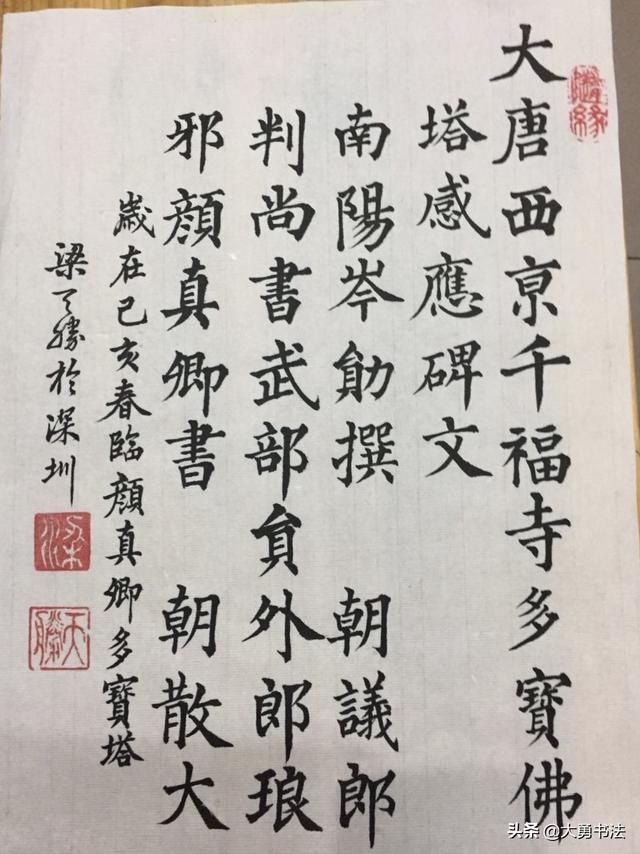 大唐西亰千福寺多寶佛
塔感應碑文
南陽岑勛撰 朝議郎
判尚書武部貟外郎琅
邪顔真卿書 朝散大
歲在己亥春臨顔真卿多寶塔
梁天勝於深圳
天勝
头条 @大勇书法